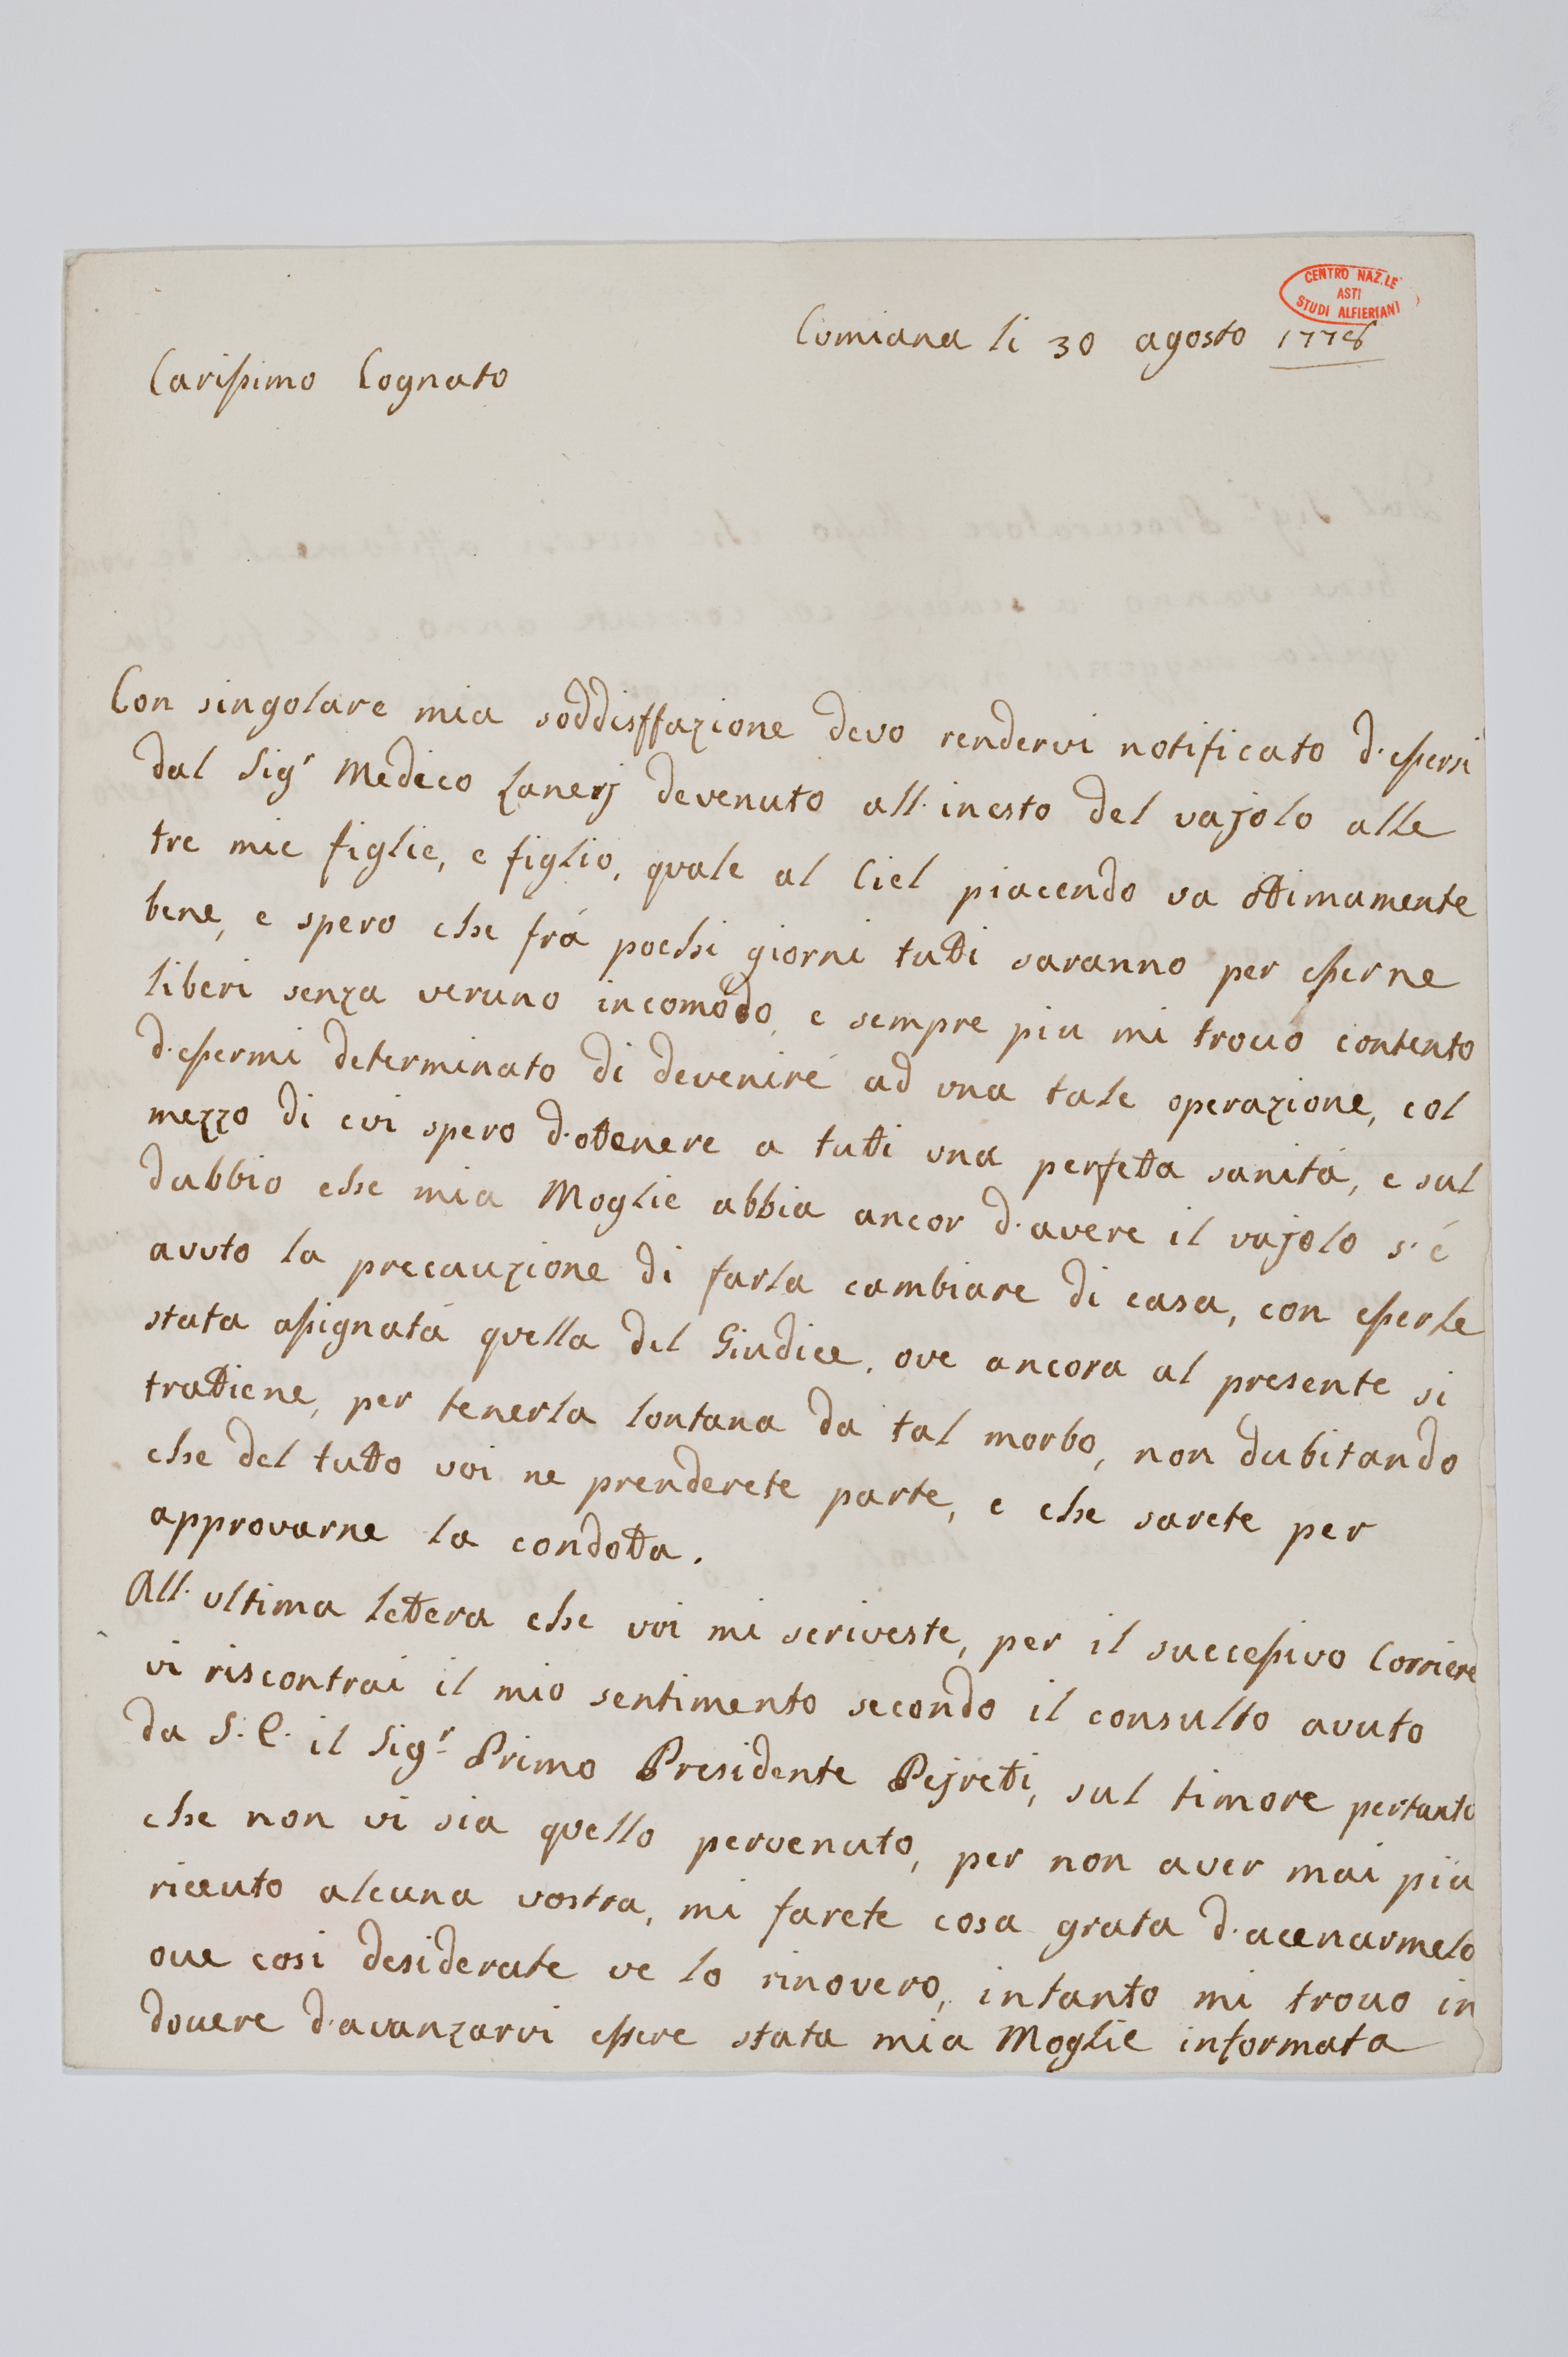 CENTRO NAZ.LE
ASTI
STUDI ALFIERIANI
Cumiana li 30 agosto 1778
Carissimo Cognato
Con singolare mia soddisffazione devo rendervi notificato d'essersi
dal Sigr Medico Zanerj devenuto all'inesto del vajolo alle
tre mie figlie, e figlio, quale al Ciel piacendo va ottimamente
bene, e spero che frá pochi giorni tutti saranno per esserne
liberi senza veruno incomodo, e sempre piu mi trovo contento
d'essermi determinato di devenire ad una tale operazione, col
mezzo di cui spero d'ottenere a tutti una perfetta sanitá, e sul
dubbio che mia Moglie abbia ancor d'avere il vajolo s'é
avuto la precauzione di farla cambiare di casa, con esserle
stata assignata quella del Giudice, ove ancora al presente si
trattiene, per tenerla lontana da tal morbo, non dubitando
che del tutto voi ne prenderete parte, e che sarete per
approvarne la condotta.
All'ultima lettera che voi mi scriveste, per il successivo Corriere
vi riscontrai il mio sentimento secondo il consulto avuto
da S. E. il Sigr Primo Presidente Pejretti, sul timore pertanto
che non vi sia quello pervenuto, per non aver mai più
riceuto alcuna vostra, mi farete cosa grata d'acenarmelo
ove cosi desiderate ve lo rinovero, intanto mi trovo in
dovere d'avanzarvi essere stata mia Moglie informata